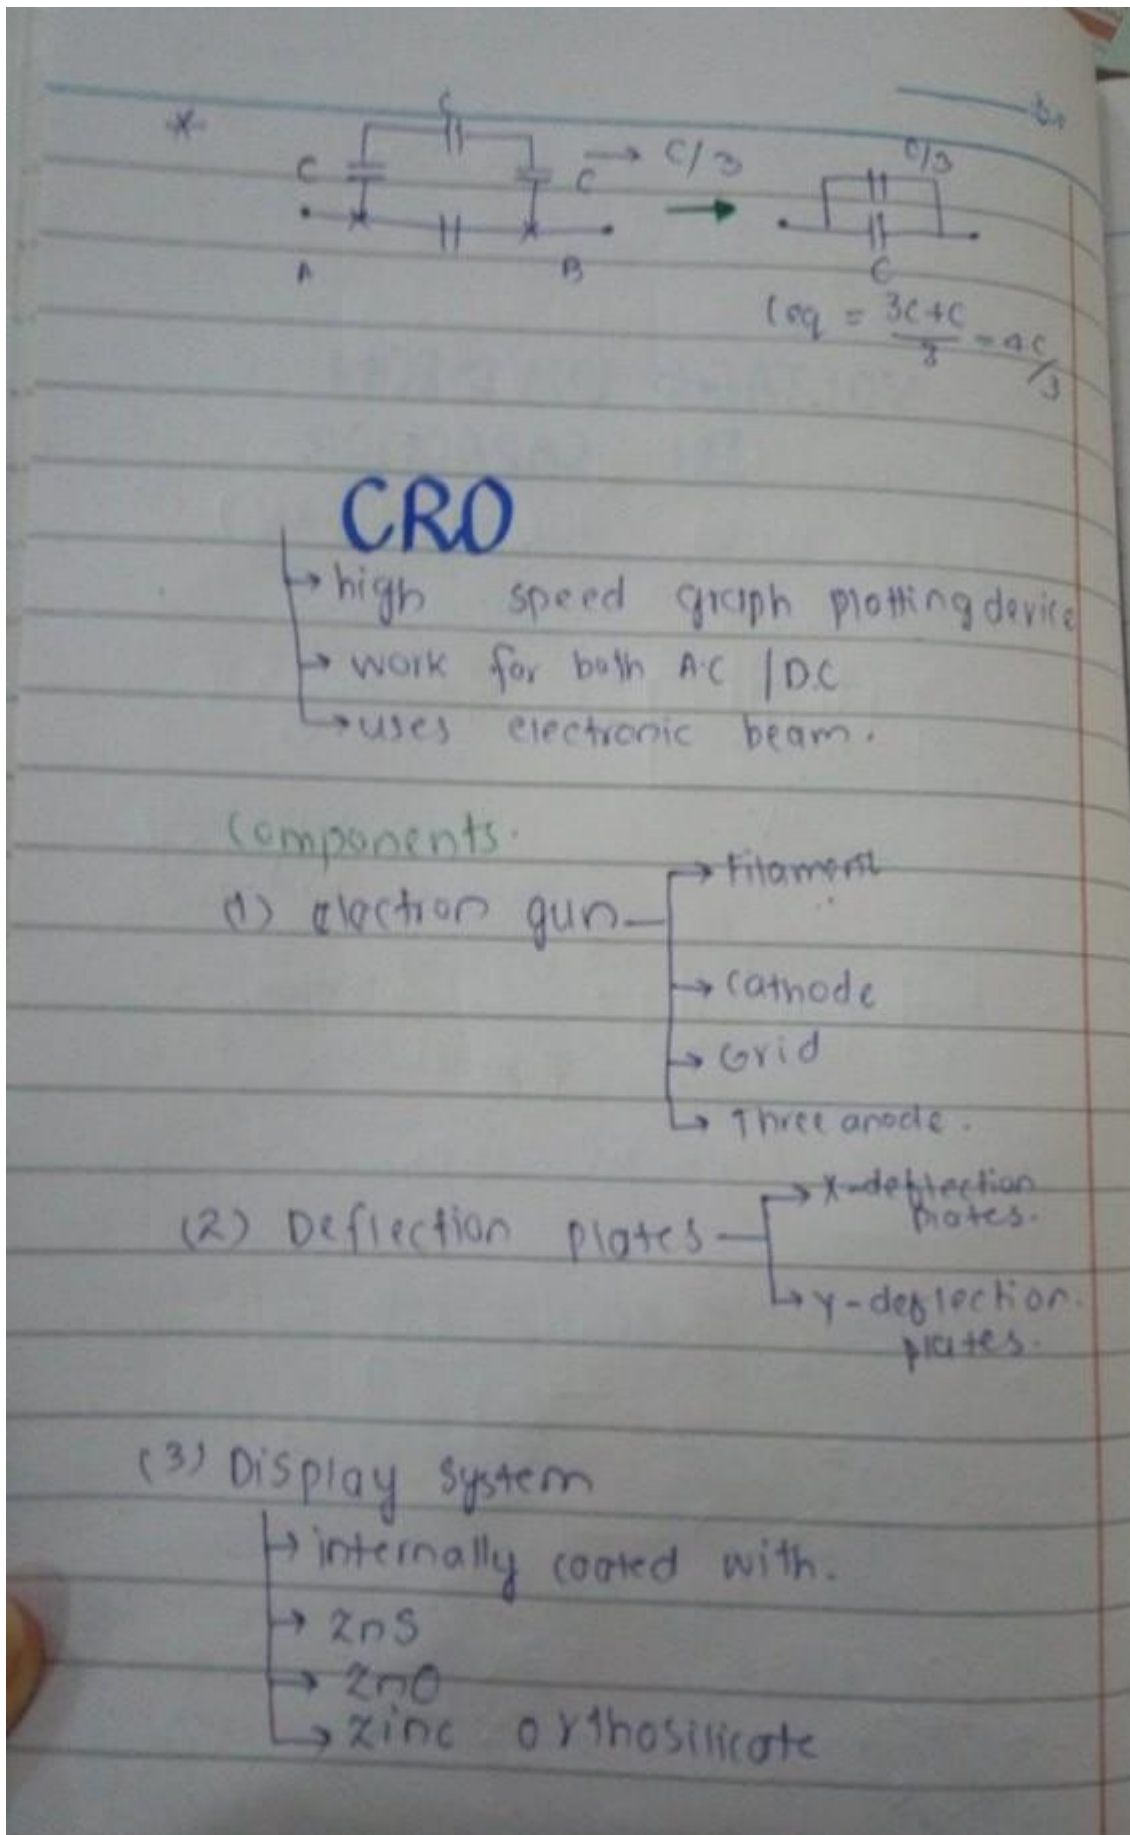 C
C → C/3
C
C/3
A B
C
Ceq = 3C+C/3 = 4C/3
CRO
→ high speed graph plotting device
→ work for both A.C / D.C
→ uses electronic beam.
Components.
→ Filament
(1) electron gun
→ Cathode
→ Grid
→ Three anode.
→ X-deflection
plates.
(2) Deflection plates
→ Y-deflection
plates.
(3) Display system
→ internally coated with.
→ ZnS
→ ZnO
→ zinc orthosilicate